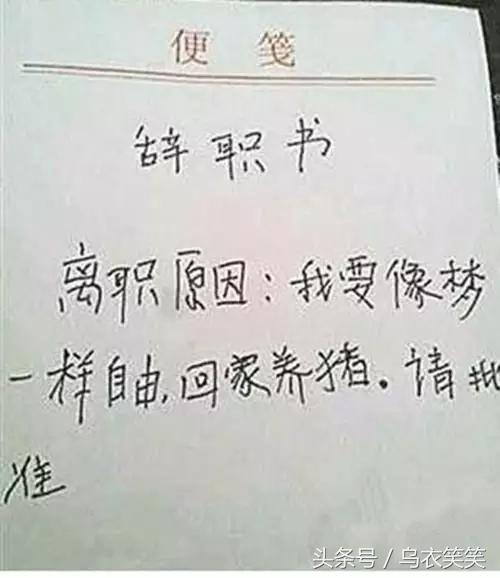 便 笺
辞职书
离职原因:我要像梦
一样自由,回家养猪。请批
准
头条号 / 乌衣笑笑